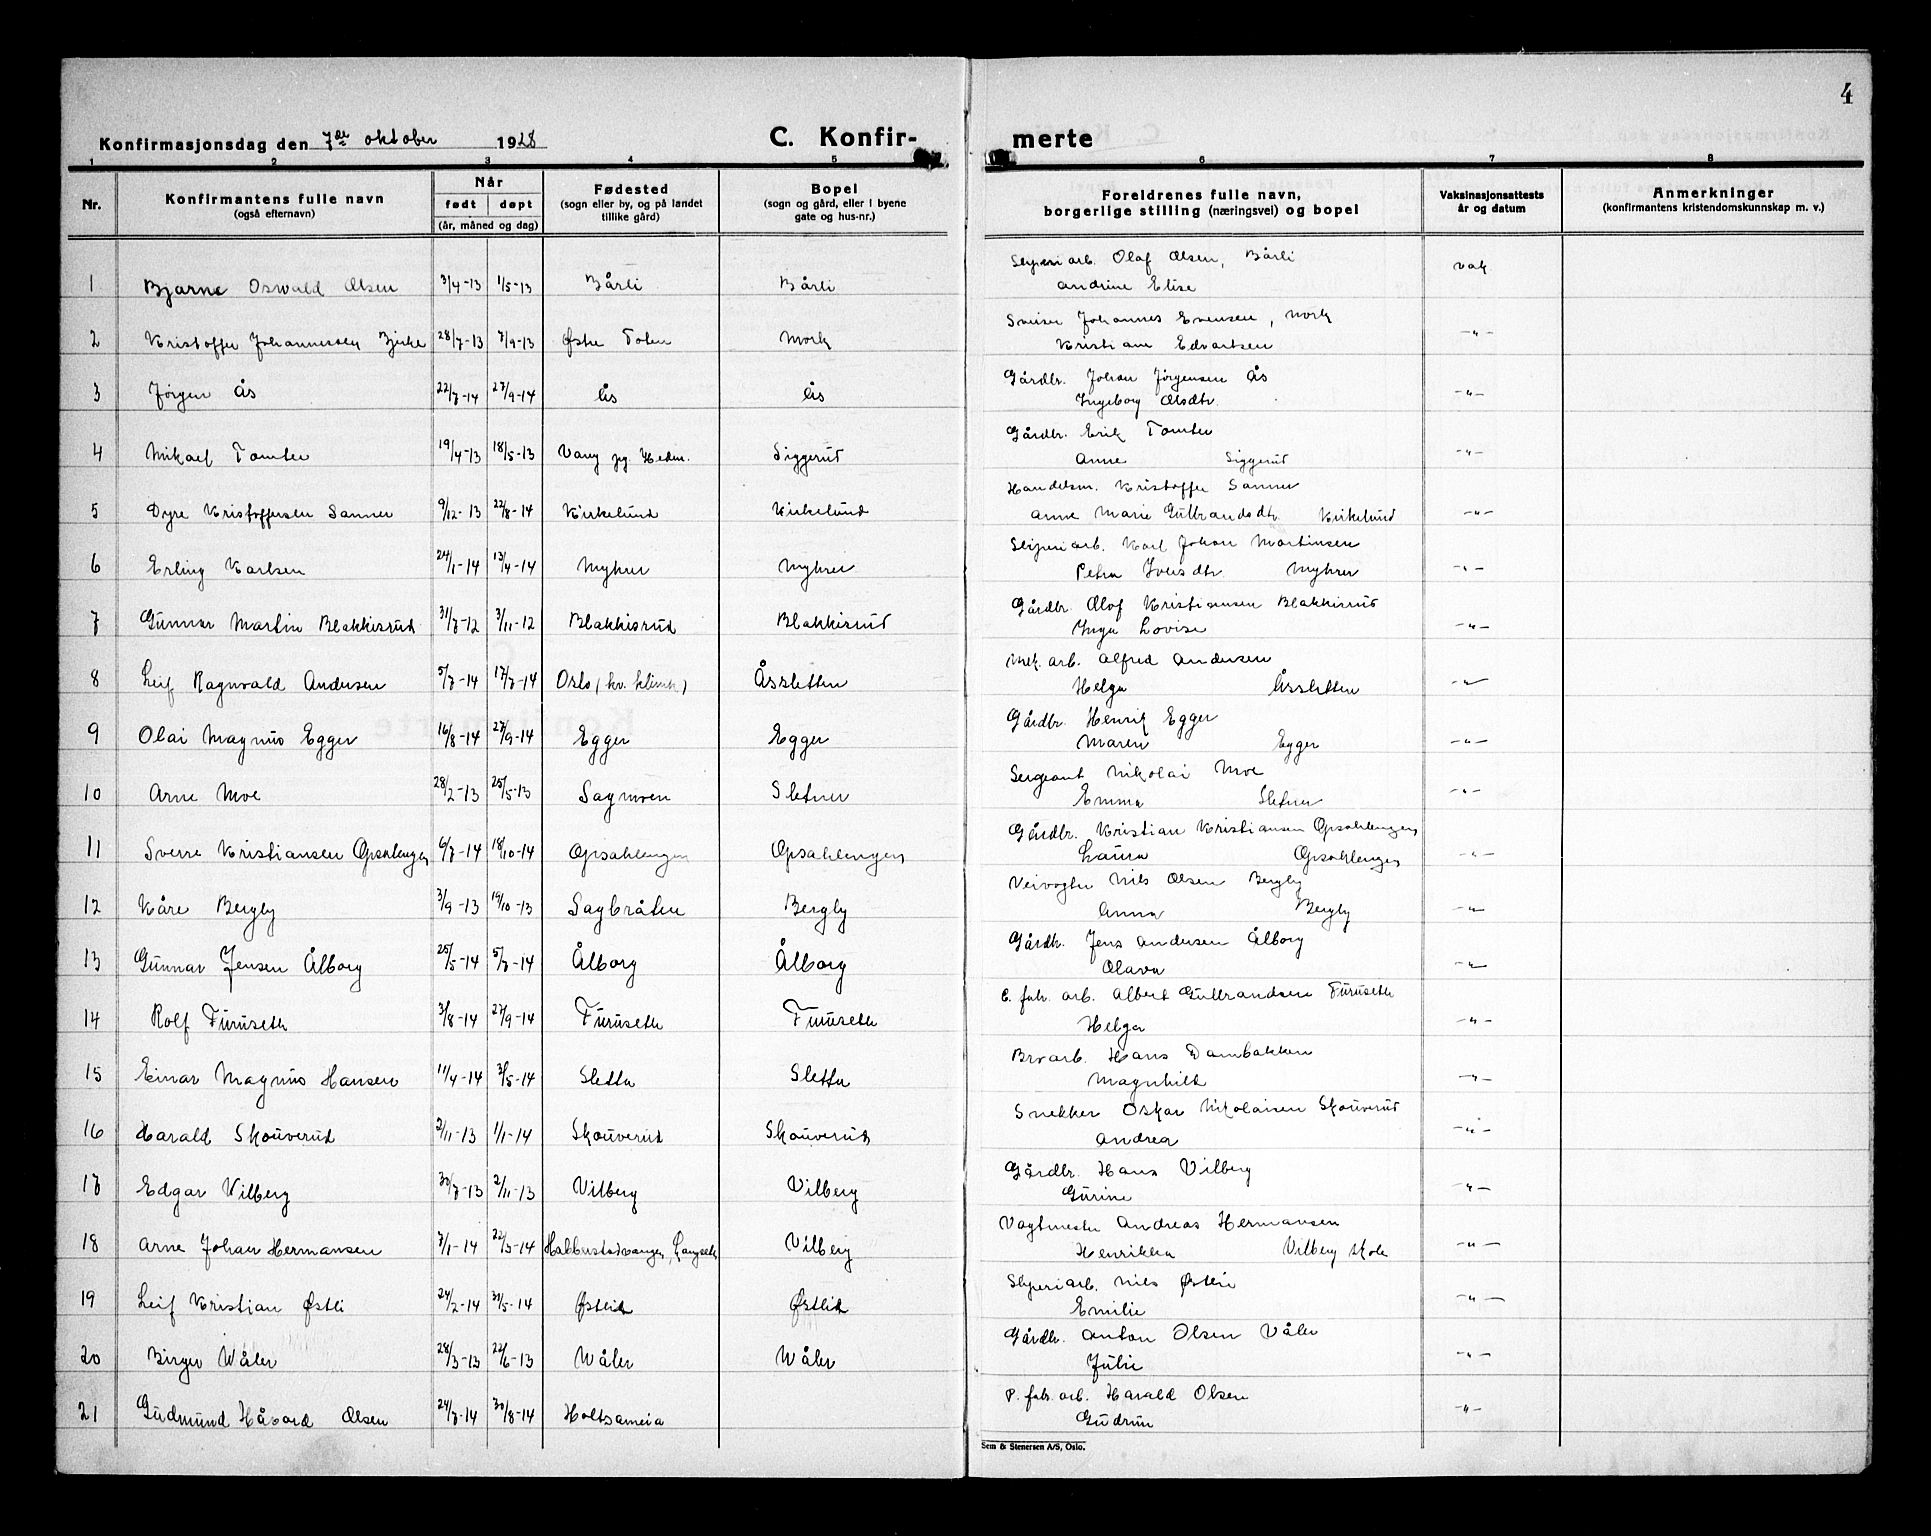 4
Konfirmasjonsdag den 7de oktober 1928
C. Konfir-
merte
1 2 3 4 5 6 7 8
Nr.
Konfirmantens fulle navn
(også efternavn)
Når
født døpt
(år, måned og dag)
Fødested
(sogn eller by, og på landet
tillike gård)
Bopel
(sogn og gård, eller i byene
gate og hus-nr.)
Foreldrenes fulle navn,
borgerlige stilling (næringsvei) og bopel
Vaksinasjonsattests
år og datum
Anmerkninger
(konfirmantens kristendomskunnskap m. v.)
Sliperiarb. Olaf Olsen, Bårli
1 Bjarne Oswald Olsen 3/4-13 1/5-13 Bårli Bårli Andrine Elise vak
Sveiser Johannes Evensen, Mork
2 Kristoffer Johannessen Bjerke 28/7-13 7/9-13 Østre Toten Mork Kristiane Edvartsen -"-
Gårdbr. Johan Jørgensen Ås
3 Jørgen Ås 22/7-14 27/9-14 Ås Ås Ingeborg Olsdtr. -"-
Gårdbr. Erik Tomter
4 Mikael Tomter 19/4-13 18/5-13 Vang pg. Hedm. Siggerud Anne Siggerud -"-
Handelsm. Kristoffer Sanner
5 Dyre Kristoffersen Sanner 9/12-13 22/8-14 Kirkelund Kirkelund Anne Marie Gulbrandsdtr. Kirkelund -"-
Sliperiarb. Karl Johan Martinsen
6 Erling Karlsen 24/1-14 13/4-14 Myhrer Myhrer Petra Iversdtr Myhrer -"-
Gårdbr. Olof Kristiansen Blakkisrud
7 Gunnar Martin Blakkisrud 31/7-12 3/11-12 Blakkisrud Blakkisrud Inga Lovise -"-
Mek. arb. Alfred Andersen
8 Leif Ragnvald Andersen 5/7-14 17/7-14 Oslo (kv. klinik) Åssletten Helga Åssletten -"-
Gårdbr. Henrik Egger
9 Olai Magnus Egger 16/8-14 27/9-14 Egger Egger Maren Egger -"-
Sergeant Nikolai Moe
10 Arne Moe 28/2-13 25/5-13 Sagmoen Sletner Emma Sletner -"-
Gårdbr. Kristian Kristiansen Opsahlengen
11 Sverre Kristiansen Opsahlengen 6/7-14 18/10-14 Opsahlengen Opsahlengen Laura Opsahlengen -"-
Veivogter Nils Olsen Bergby
12 Kåre Bergby 3/9-13 19/10-13 Sagbråten Bergby Anna Bergby -"-
Gårdbr. Jens Andersen Ålborg
13 Gunnar Jensen Ålborg 25/5-14 5/7-14 Ålborg Ålborg Olava -"-
C. fabr. arb. Albert Gulbrandsen Furuseth
14 Rolf Furuseth 3/8-14 27/9-14 Furuseth Furuseth Helga -"-
Brvarb. Hans Dambakken
15 Einar Magnus Hansen 11/4-14 3/5-14 Sletta Sletta Magnhild -"-
Snekker Oskar Nikolaisen Skouverud
16 Harald Skouverud 2/11-13 1/1-14 Skouverud Skouverud Andrea -"-
Gårdbr. Hans Vilberg
17 Edgar Vilberg 30/7-13 2/11-13 Vilberg Vilberg Gurine -"-
Vagtmester Andreas Hermansen
18 Arne Johan Hermansen 7/1-14 22/3-14 Habberstadvangen, Langseth Vilberg Henrikka Vilberg skole -"-
Sliperiarb. Nils Østli
19 Leif Kristian Østli 24/2-14 31/5-14 Østlid Østlid Emilie -"-
Gårdbr. Anton Olsen Våler
20 Birger Wåler 28/3-13 22/6-13 Wåler Wåler Julie -"-
P. fabr. arb. Harald Olsen
21 Gudmund Håvard Olsen 24/7-14 30/8-14 Holtsmeia Gudrun -"-
Sem & Stenersen A/S, Oslo.